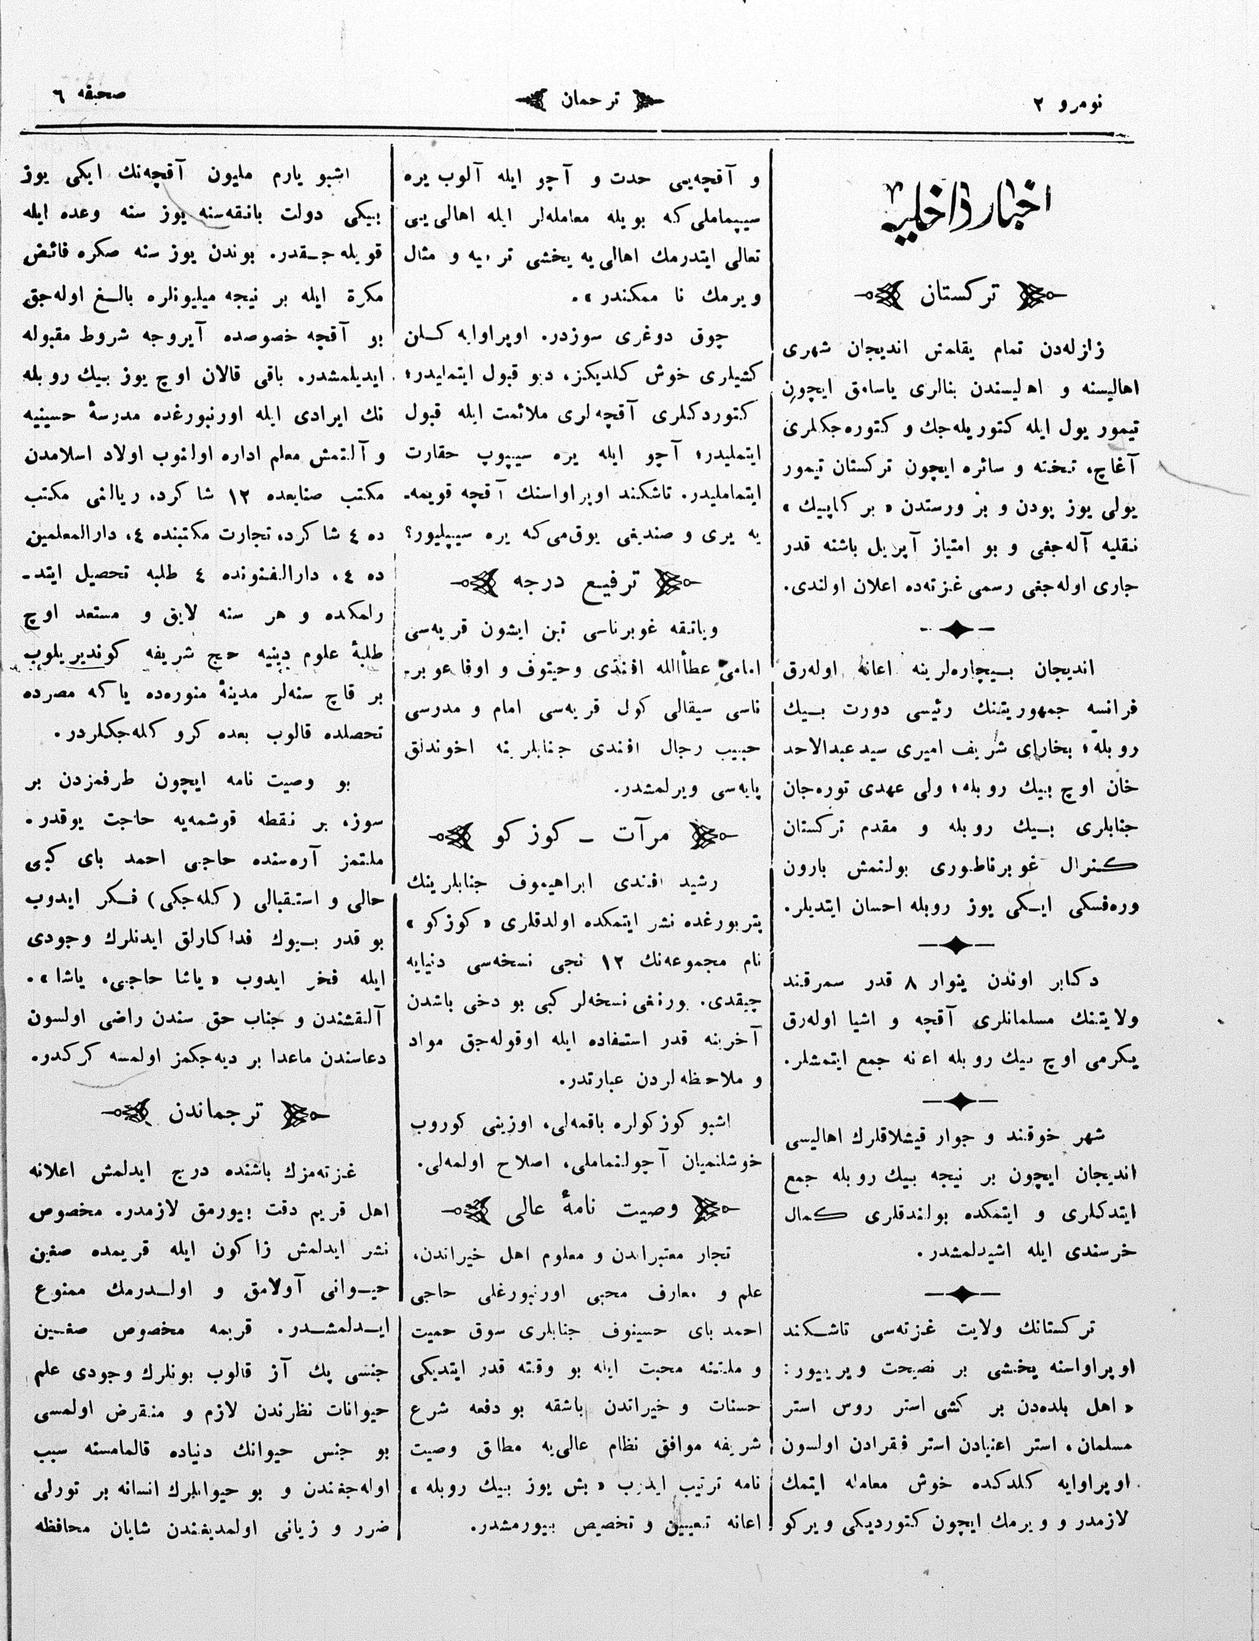 نومرو ۲
ترجمان
صحیفه ٦
اخبار داخلیه
تركستان
زلزله‌دن تمام یقلمش اندیجان شهری
اهالیسنه و اهالیسندن بنالری یاسامق ایچون
تیمور یول ایله كتوریله‌جك و كتوره‌جكلری
آغاچ، تخته و سائره ایچون تركستان تیمور
یولی یوز پودن و بر ورستدن «بر كاپیك»
نقلیه آله‌جغی و بو امتیاز آپریل باشنه قدر
جاری اوله‌جغی رسمی غزته‌ده اعلان اولندی.
اندیجان بیچاره‌لرینه اعانه اوله‌رق
فرانسه جمهوریتنك رئیسی دورت بیك
روبله؛ بخارای شریف امیری سید عبدالاحد
خان اوچ بیك روبله؛ ولی عهدی توره‌جان
جنابلری بیك روبله و مقدم تركستان
كنرال غوبرناطوری بولنمش بارون
وره‌فسكی ایكی یوز روبله احسان ایتدیلر.
دكابر اوندن ینوار ۸ قدر سمرقند
ولایتنك مسلمانلری آقچه و اشیا اوله‌رق
یكرمی اوچ بیك روبله اعانه جمع ایتمشلر.
شهر خوقند و جوار قیشلاقلرك اهالیسی
اندیجان ایچون بر نیجه بیك روبله جمع
ایتدكلری و ایتمكده بولندقلری كمال
خرسندی ایله اشیدلمشدر.
تركستانك ولایت غزته‌سی تاشكند
اوپراواسنه یخشی بر نصیحت ویرییور:
«اهل بلده‌دن بر كشی استر روس استر
مسلمان، استر اغنیادن استر فقرادن اولسون
اوپراوایه كلدكده خوش معامله ایتمك
لازمدر و ویرمك ایچون كتوردیكی ویركو
و آقچه‌یی حدت و آچو ایله آلوب یره
سیپماملی‌كه بویله معامله‌لر ایله اهالی‌یی
تعالی ایتدرمك اهالی‌یه یخشی تربیه و مثال
ویرمك نا ممكندر».
چوق دوغری سوزدر. اوپراوایه كلن
كشیلری خوش كلدیكز، دیو قبول ایتمایدر؛
كتوردكلری آقچه‌لری ملائمت ایله قبول
ایتملیدر؛ آچو ایله یره سیپوپ حقارت
ایتماملیدر. تاشكند اوپراواسنك آقچه قویمه‌ـ
یه یری و صندیغی یوق‌می‌كه یره سیپلیور؟
ترفیع درجه
ویاتقه غوبرناسی تبن ایشون قریه‌سی
امامی عطأالله افندی وحیتوف و اوفا غوبرـ
ناسی سیقالی كول قریه‌سی امام و مدرسی
حبیب رجال افندی جنابلرینه اخوندلق
پایه‌سی ویرلمشدر.
مرآت ـ كوزكو
رشید افندی ابراهیموف جنابلرینك
پتربورغده نشر ایتمكده اولدقلری «كوزكو»
نام مجموعه‌نك ۱۲ نجی نسخه‌سی دنیایه
چیقدی. بورنغی نسخه‌لر كبی بو دخی باشدن
آخرینه قدر استفاده ایله اوقوله‌جق مواد
و ملاحظه‌لردن عبارتدر.
اشبو كوزكولره باقمه‌لی، اوزینی كوروب
خوشلنمیان آچولنماملی، اصلاح اولمه‌لی.
وصیت نامهٔ عالی
تجار معتبراندن و معلوم اهل خیراندن،
علم و معارف محبی اورنبورغلی حاجی
احمد بای حسینوف جنابلری سوق حمیت
و ملتینه محبت ایله بو وقته قدر ایتدیكی
حسنات و خیراتدن باشقه بو دفعه شرع
شریفه موافق نظام عالی‌یه مطابق وصیت
نامه ترتیب ایدوب «بش یوز بیك روبله»
اعانه تعیین و تخصیص بیورمشدر.
اشبو یارم ملیون آقچه‌نك ایكی یوز
بیكی دولت بانقه‌سنه یوز سنه وعده ایله
قویله‌جقدر. بوندن یوز سنه صكره فائض
مكرة ایله بر نیجه میلیونلره بالغ اوله‌جق
بو آقچه خصوصده آیروجه شروط مقبوله
ایدیلمشدر. باقی قالان اوچ یوز بیك روبله
نك ایرادی ایله اورنبورغده مدرسهٔ حسینیه
و آلتمش معلم اداره اولنوب اولاد اسلامدن
مكتب صنایعده ۱۲ شاكرد، ریالنی مكتب
ده ٤ شاكرد، تجارت مكتبنده ٤، دارالمعلمین
ده ٤، دارالفنونده ٤ طلبه تحصیل ایتدـ
رلمكده و هر سنه لایق و مستعد اوچ
طلبهٔ علوم دینیه حج شریفه كوندیریلوب
بر قاچ سنه‌لر مدینهٔ منوره‌ده یاكه مصرده
تحصلده قالوب بعده كرو كله‌جكلردر.
بو وصیت نامه ایچون طرفمزدن بر
سوز، بر نقطه قوشمه‌یه حاجت یوقدر.
ملتمز آره‌سنده حاجی احمد بای كبی
حالی و استقبالی (كله‌جكی) فكر ایدوب
بو قدر بیوك فداكارلق ایدنلرك وجودی
ایله فخر ایدوب «یاشا حاجی، یاشا».
آلقشندن و جناب حق سندن راضی اولسون
دعاسندن ماعدا بر دیه‌جكمز اولمسه كركدر.
ترجماندن
غزته‌مزك باشنده درج ایدلمش اعلانه
اهل قریم دقت بیورمق لازمدر. مخصوص
نشر ایدلمش زاكون ایله قریمده صغین
حیوانی آولامق و اولدرمك ممنوع
ایدلمشدر. قریمه مخصوص صغین
جنسی پك آز قالوب بونلرك وجودی علم
حیوانات نظرندن لازم و منقرض اولمسی
بو جنس حیوانك دنیاده قالمامسنه سبب
اوله‌جغندن و بو حیوانلرك انسانه بر تورلی
ضرر و زیانی اولمدیغندن شایان محافظه